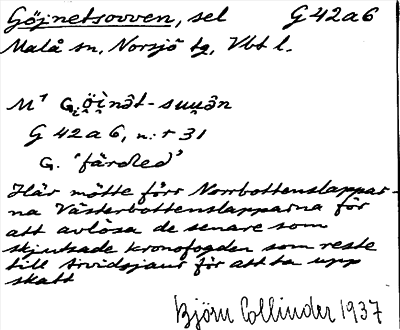 Göjnetsovven, sel G 42 a 6
Malå sn, Norsjö tg, Vbt l.
G 42 a 6, n:r 31
G. 'färdled'
Här mötte förr Norrbottenslappar-
na Västerbottenslapparna för
att avlösa de senare som
skjutsade kronofogden som reste
till Arvidsjaur för att ta upp
skatt
Björn Collinder 1937